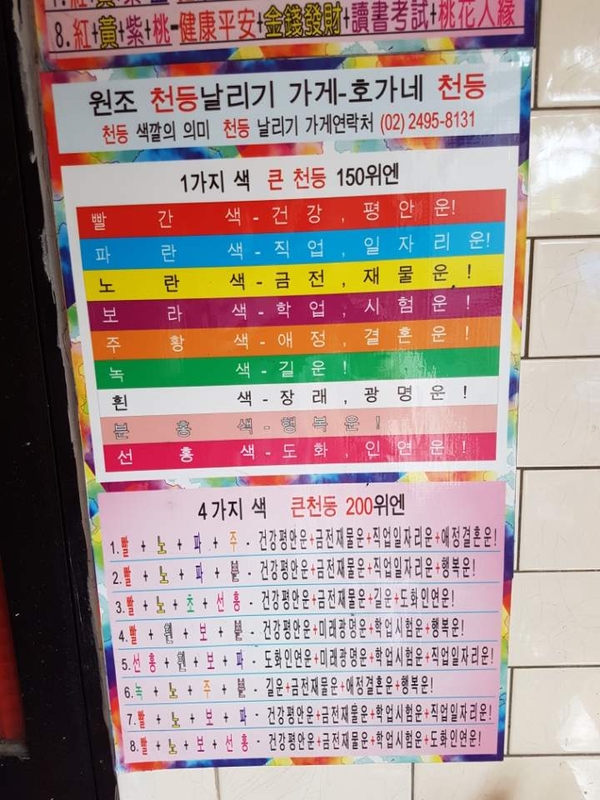 8.紅+黃+紫+桃-健康平安+金錢發財+讀書考試+桃花人緣
원조 천등날리기 가게-호가네 천등
천등 색깔의 의미 천등 날리기 가게연락처 (02) 2495-8131
1가지 색 큰 천등 150위엔
빨간색-건강, 평안운!
파란색-직업, 일자리운!
노란색-금전, 재물운!
보라색-학업, 시험운!
주황색-애정, 결혼운!
녹색-길운!
흰색-장래, 광명운!
분홍색-행복운!
선홍색-도화, 인연운!
4가지 색 큰천등 200위엔
1.빨+노+파+주-건강평안운+금전재물운+직업일자리운+애정결혼운!
2.빨+노+파+분-건강평안운+금전재물운+직업일자리운+행복운!
3.빨+노+초+선홍-건강평안운+금전재물운+길운+도화인연운!
4.빨+흰+보+분-건강평안운+미래광명운+학업시험운+행복운!
5.선홍+흰+보+파-도화인연운+미래광명운+학업시험운+직업일자리운!
6.녹+노+주+분-길운+금전재물운+애정결혼운+행복운!
7.빨+노+보+파-건강평안운+금전재물운+학업시험운+직업일자리운!
8.빨+노+보+선홍-건강평안운+금전재물운+학업시험운+도화인연운!